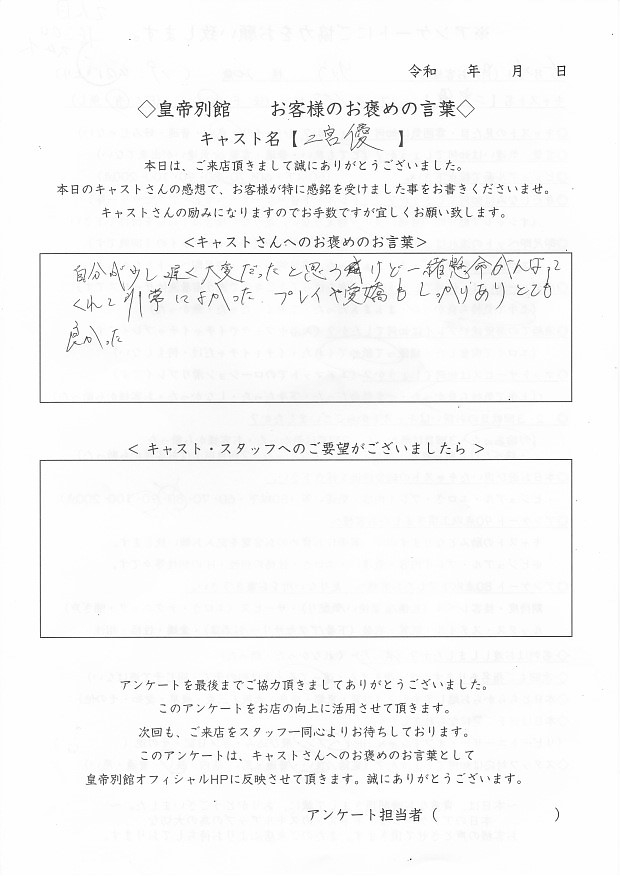 令和　　年　　月　　日
◇皇帝別館　　お客様のお褒めの言葉◇
キャスト名【 二宮優 】
本日は、ご来店頂きまして誠にありがとうございました。
本日のキャストさんの感想で、お客様が特に感銘を受けました事をお書きくださいませ。
キャストさんの励みになりますのでお手数ですが宜しくお願い致します。
<キャストさんへのお褒めのお言葉>
自分が少し遅く大変だったと思うけど一緒懸命がんばって
くれて非常によかった。プレイや愛嬌もしっかりありとても
良かった
< キャスト・スタッフへのご要望がございましたら >
アンケートを最後までご協力頂きましてありがとうございました。
このアンケートをお店の向上に活用させて頂きます。
次回も、ご来店をスタッフ一同心よりお待ちしております。
このアンケートは、キャストさんへのお褒めのお言葉として
皇帝別館オフィシャルHPに反映させて頂きます。誠にありがとうございます。
アンケート担当者（　　　　　　　）